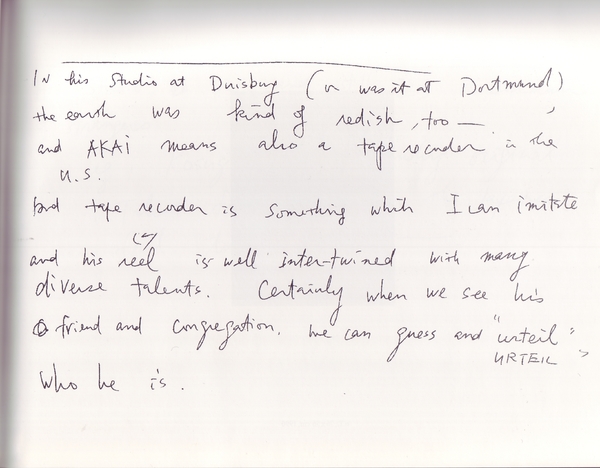 IN his Studio at Duisburg (or was it at Dortmund)
the earth was kind of redish, too —
and AKAI means also a tape recorder in the
U.S.
and tape recorder is something which I can imitate
and his reel is well inter-twined with many
diverse talents. Certainly when we see his
friend and congregation. we can guess and "urteil"
URTEIL
who he is.